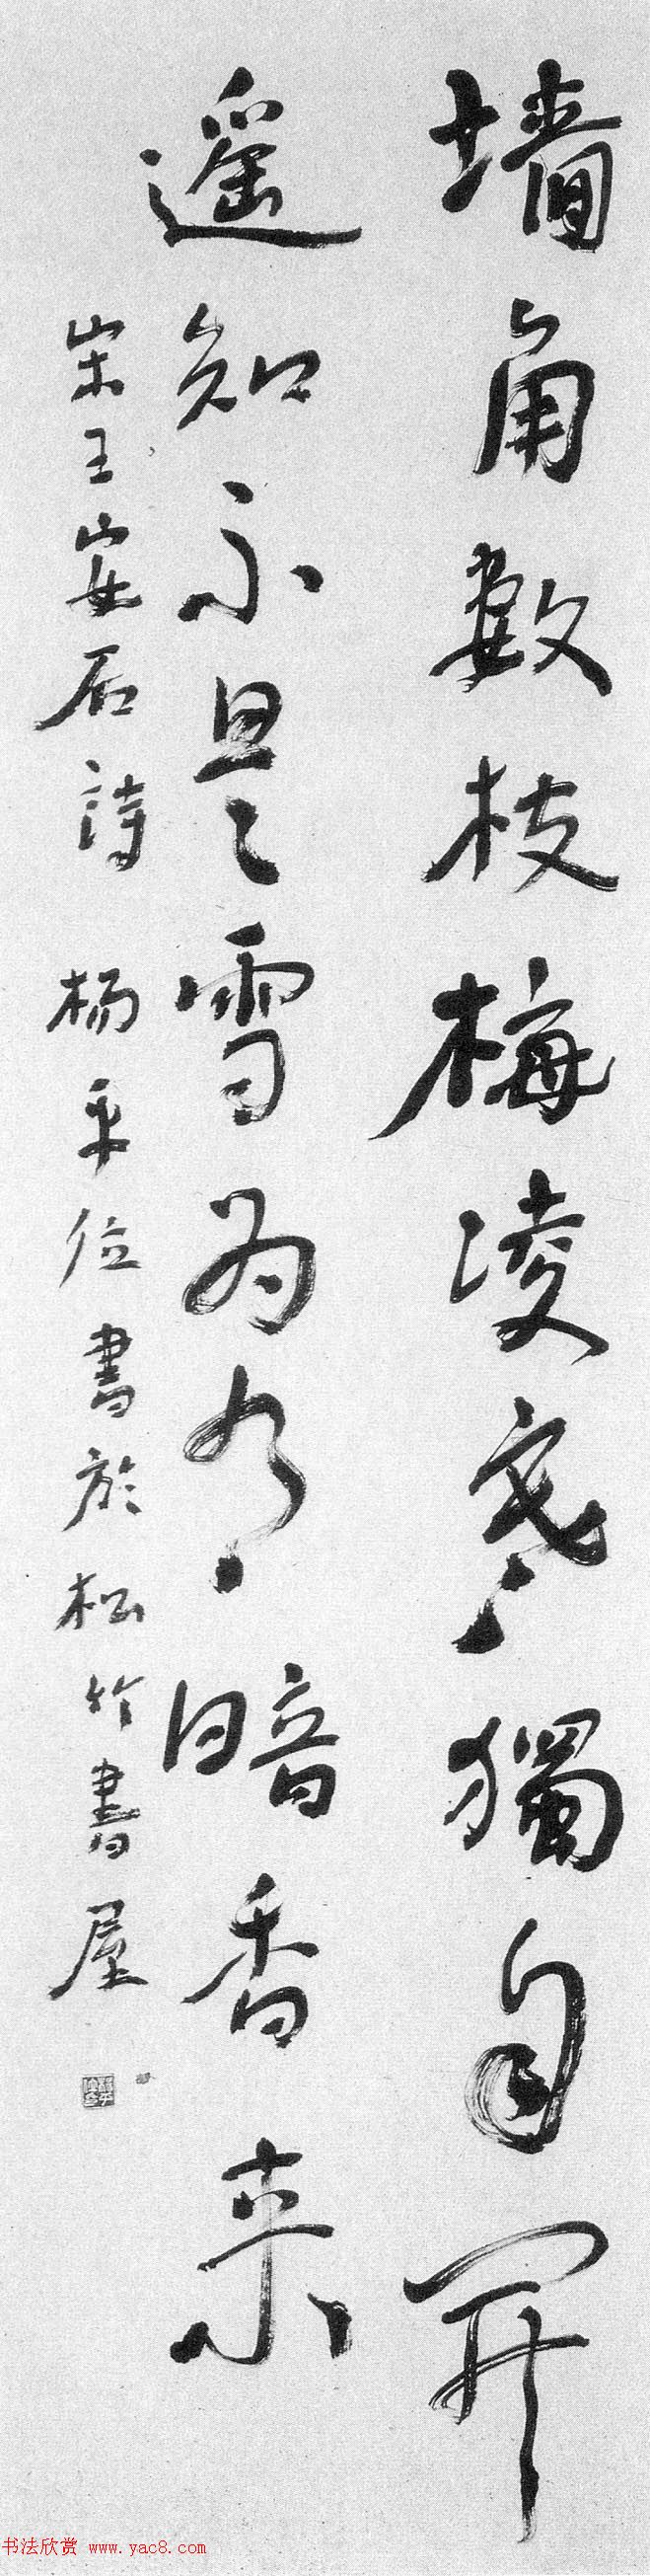 墙角數枝梅凌寒獨自開
遥知不是雪為有暗香来
宋王安石詩 楊平位書於松竹書屋
书法欣赏 www.yac8.com